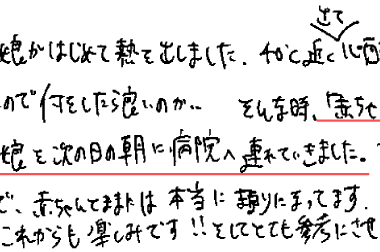 出て
娘がはじめて熱を出しました. 私
ので何をしたら良いのか.. そんな時、「赤ち
娘を次の日の朝に病院へ連れていきました。
で、赤ちゃん は本当に 頼りにまってます.
これからも楽しみです!!そしてとても参考にさせ